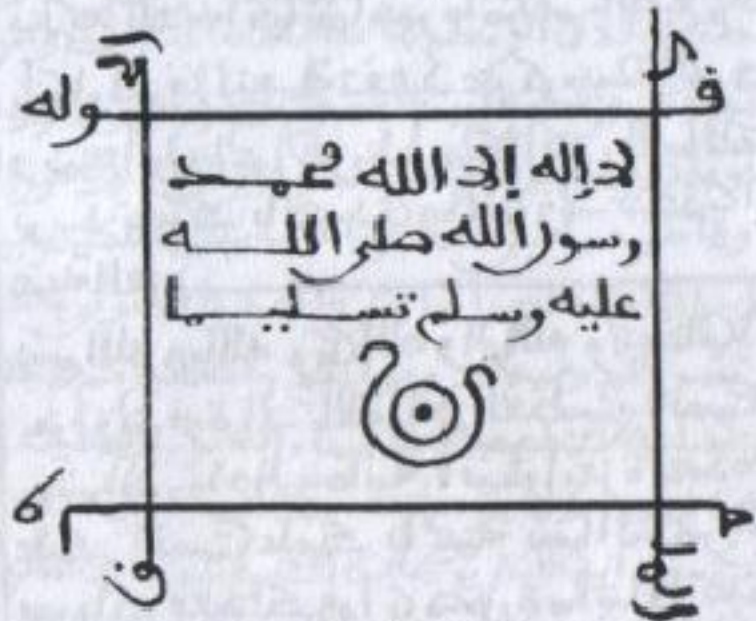 قوله
لا إله إلا الله محمد
رسول الله صلى الله
عليه وسلم تسليما